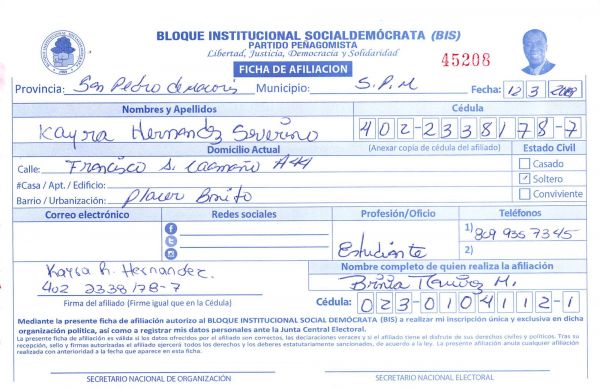 BLOQUE INSTITUCIONAL SOCIALDEMÓCRATA (BIS)
PARTIDO PEÑAGOMISTA
Libertad, Justicia, Democracia y Solidaridad
FICHA DE AFILIACION
45208
Provincia: San Pedro de Macoris Municipio: S.P.M Fecha: 12 3
Nombres y Apellidos
Cédula
Kayra Hernandez Severino
402-2338178-7
Domicilio Actual
(Anexar copia de cédula del afiliado)
Estado Civil
Calle: Francisco S. Caamaño A#
Casado
#Casa / Apt. / Edificio:
Soltero
Barrio / Urbanización: Placer Bonito
Conviviente
Correo electrónico
Redes sociales
Profesión/Oficio
Teléfonos
1) 809 935 7345
Estudiante
2)
Kayra R. Hernandez.
402 2338178-7
Nombre completo de quien realiza la afiliación
M.
Firma del afiliado (Firme igual que en la Cédula)
Cédula: 023-0104112-1
Mediante la presente ficha de afiliación autorizo al BLOQUE INSTITUCIONAL SOCIAL DEMÓCRATA (BIS) a realizar mi inscripción única y exclusiva en dicha
organización política, así como a registrar mis datos personales ante la Junta Central Electoral.
La presente ficha de afiliación es válida si los datos ofrecidos por el afiliado son correctos, las declaraciones veraces y si el afiliado tiene el disfrute de sus derechos civiles y políticos. Tras su
recepción, sello y firmas autorizadas el afiliado ejercerá todos los derechos y los deberes estatutariamente sancionados, de acuerdo a la ley. La presente afiliación anula cualquier afiliación
realizada con anterioridad a la fecha que aparece en esta ficha.
SECRETARIO NACIONAL DE ORGANIZACIÓN
SECRETARIO NACIONAL ELECTORAL